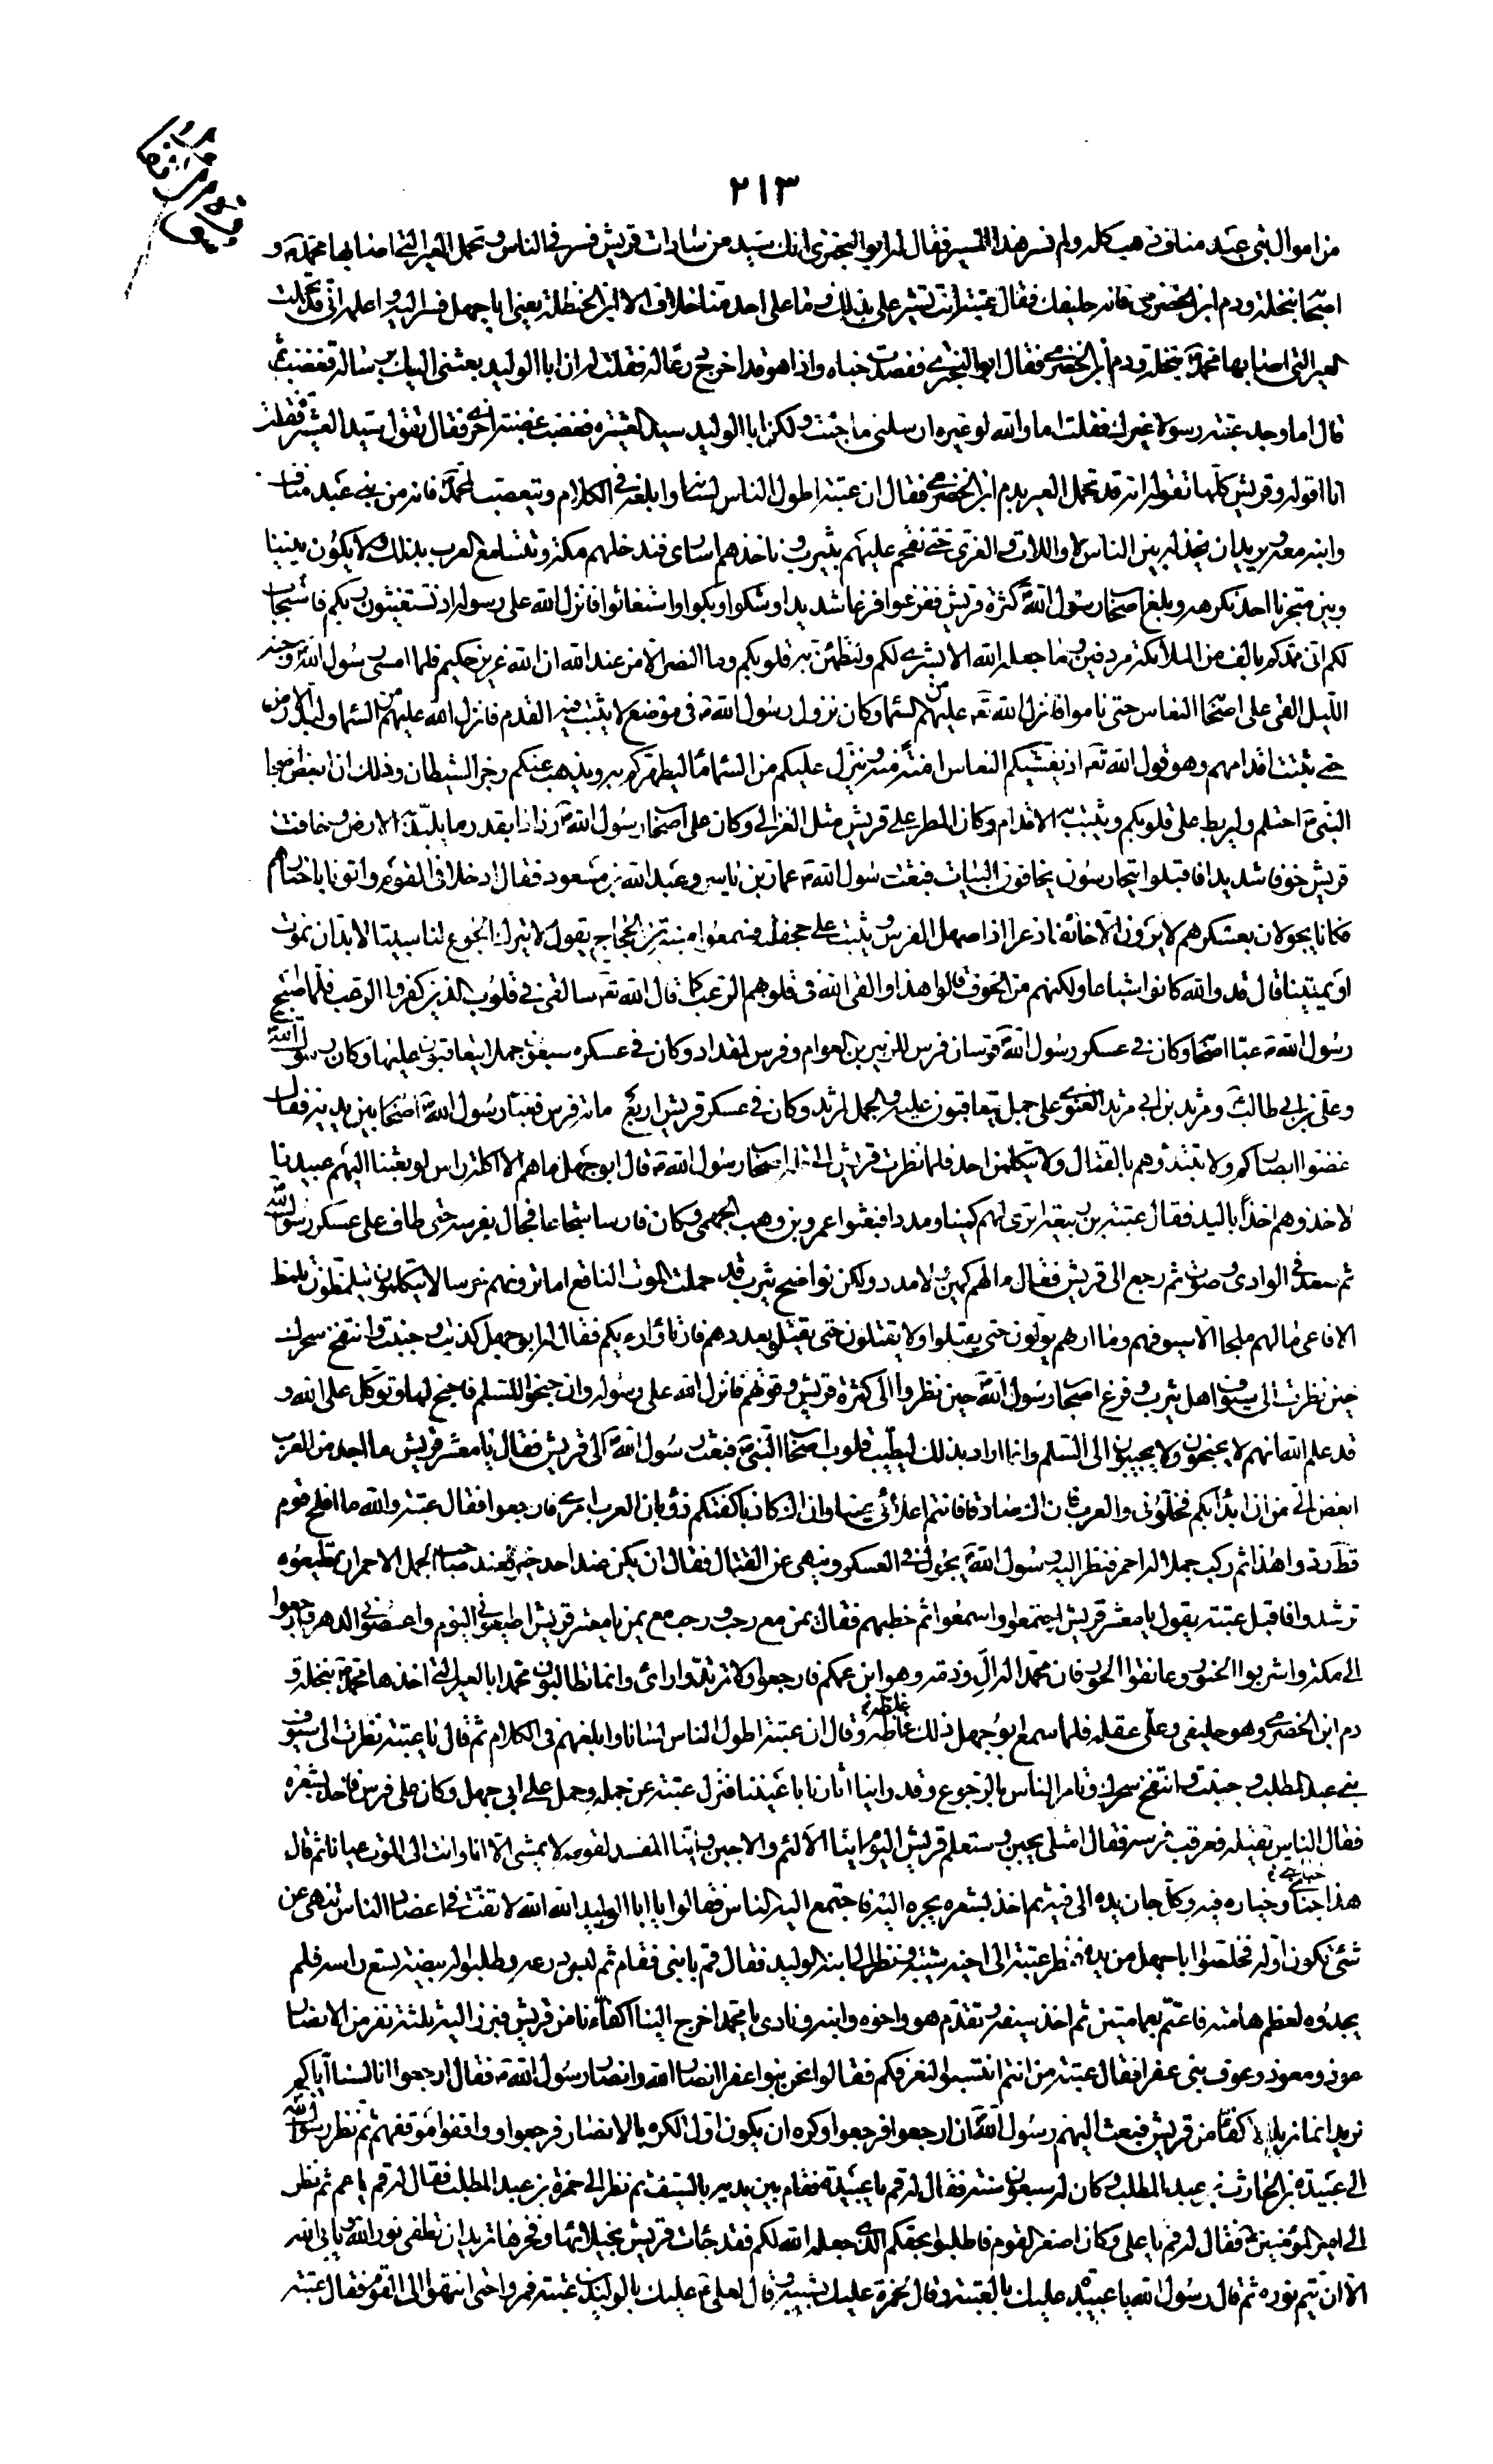 ٢١٣
من اموال بنى عبد مناف ذهب كله ولم نسر هذا المسير فقال له ابو البخترى انك سيد من سادات قريش فسر فى الناس وتحمل العير التى اصابها محمد ص و
اصحابه بنخلة ودم ابن الحضرمى فانه حليفك فقال عتبة انت تشير على بذلك وما على احد منا خلاف الا ابن الحنظلة يعنى ابا جهل فسر اليه واعلمه انى قد تحملت
العير التى اصابها محمد ص بنخلة ودم ابن الحضرمى فقال ابو البخترى فقصدت خباه واذا هو قد اخرج درعا له فقلت له ان ابا الوليد بعثنى اليك برسالة فغضب ثم
قال اما وجد عتبة رسولا غيرك فقلت اما والله لو غيره ارسلنى ما جئت ولكن ابا الوليد سيد العشيرة فغضب غضبة اخرى فقال تقول سيد العشيرة فقلت
انا اقوله وقريش كلها تقوله انه قد تحمل العير ودم ابن الحضرمى فقال ان عتبة اطول الناس لسانا وابلغه فى الكلام ويتعصب لمحمد فانه من بنى عبد مناف
وابنه معه ويريد ان يخذله بين الناس لا واللات والعزى حتى نقحم عليهم بيثرب وناخذهم اسارى فندخلهم مكة وتتسامع العرب بذلك ولا يكون بيننا
وبين متجرنا احد نكرهه وبلغ اصحاب رسول الله ص كثرة قريش ففزعوا فزعا شديدا وشكوا وبكوا واستغاثوا فانزل الله على رسوله اذ تستغيثون ربكم فاستجاب
لكم انى ممدكم بالف من الملائكة مردفين وما جعله الله الا بشرى لكم ولتطمئن به قلوبكم وما النصر الا من عند الله ان الله عزيز حكيم فلما امسى رسول الله ص وجنه
الليل القى على اصحابه النعاس حتى ناموا فانزل الله تعم عليهم من السما وكان نزول رسول الله ص فى موضع لا يثبت فيه القدم فانزل الله عليهم من السما ولبد الارض
حتى يثبت اقدامهم وهو قول الله تعم اذ يغشيكم النعاس امنة منه وينزل عليكم من السما ماً ليطهركم به ويذهب عنكم رجز الشيطان وذلك ان بعض اصحاب
النبى ص احتلم وليربط على قلوبكم ويثبت به الاقدام وكان المطر على قريش مثل العزالى وكان على اصحاب رسول الله ص رذاذا بقدر ما يلبد الارض وخافت
قريش خوفا شديدا فاقبلوا يتحارسون يخافون البيات فبعث رسول الله ص عمار بن ياسر وعبد الله بن مسعود فقال ادخلا فى القوم واتونا باخبارهم
فكانا يجولان بعسكرهم لا يرون الا خائفا ذعرا اذا صهل الفرس وثبت على جحفلته فسمعوا منبه بن الحجاج يقول لا يترك الجوع لنا مبيتا لابد ان نموت
او يميتنا قال قد والله كانوا شباعا ولكنهم من الخوف قالوا هذا والقى الله فى قلوبهم الرعب كما قال الله تعم سالقى فى قلوب الذين كفروا الرعب فلما اصبح
رسول الله ص عبا اصحابه وكان فى عسكر رسول الله ص فرسان فرس للزبير بن العوام وفرس لمقداد وكان فى عسكره سبعون جملا يتعاقبون عليها وكان رسول الله
وعلى بن ابى طالب ع ومرثد بن ابى مرثد الغنوى على جمل يتعاقبون عليه والجمل لمرثد وكان فى عسكر قريش اربع مائة فرس فعبا رسول الله ص اصحابه بين يديه فقال
غضوا ابصاركم ولا تبدؤهم بالقتال ولا يتكلمن احد فلما نظرت قريش الى قلة اصحاب رسول الله ص قال ابو جهل ما هم الا اكلة راس لو بعثنا اليهم عبيدنا
لاخذوهم اخذاً باليد فقال عتبة بن ربيعة اترى لهم كمينا ومددا فبعثوا عمرو بن وهب الجمحى وكان فارسا شجاعا فجال بفرسه حتى طاف على عسكر رسول الله
ثم صعد فى الوادى وصوت ثم رجع الى قريش فقال ما لهم كمين ولا مدد ولكن نواضح يثرب قد حملت الموت الناقع اما ترونهم خرسا لا يتكلمون يتلمظون تلمظ
الافاعى ما لهم ملجا الا سيوفهم وما اراهم يولون حتى يقتلوا ولا يقتلون حتى يقتلوا بعددهم فارتاؤا رءيكم فقال له ابو جهل كذبت وجبنت وانتفخ سحرك
حين نظرت الى سيوف اهل يثرب وفزع اصحاب رسول الله ص حين نظروا الى كثرة قريش وقوتهم فانزل الله على رسوله وان جنحوا للسلم فاجنح لها وتوكل على الله و
قد علم الله انهم لا يجنحون ولا يجيبون الى السلم وانما اراد بذلك ليطيب قلوب اصحاب النبى ص فبعث رسول الله ص الى قريش فقال يا معشر قريش ما احد من العرب
ابغض الى من ان ابدأ بكم فخلونى والعرب فان اك صادقا فانتم اعلا بى عينا وان اك كاذبا كفتكم ذؤبان العرب امرى فارجعوا فقال عتبة والله ما افلح قوم
قط ردوا هذا ثم ركب جملا له احمر فنظر اليه رسول الله ص يجول فى العسكر وينهى عن القتال فقال ان يكن عند احد خير فعند صاحب الجمل الاحمر ان يطيعوه
ترشدوا فاقبل عتبة يقول يا معشر قريش اجتمعوا واسمعوا ثم خطبهم فقال يمن مع رحب ورحب مع يمن يا معشر قريش اطيعونى اليوم واعصونى الدهر فارجعوا
الى مكة واشربوا الخمور وعانقوا الحور فان محمدا له ال وذمة وهو ابن عمكم فارجعوا ولا تردوا رائى وانما تطالبون محمدا بالعير التى اخذها محمد ص بنخلة و
دم ابن الحضرمى وهو حليفى وعلى عقله فلما سمع ابو جهل ذلك غاظه وقال ان عتبة اطول الناس لسانا وابلغهم فى الكلام ثم قال يا عتبة نظرت الى سيوف
بنى عبد المطلب وجبنت وانتفخ سحرك وتامر الناس بالرجوع وقد راينا اثارنا باعيننا فنزل عتبة عن جمله وحمل على ابى جهل وكان على فرس فاخذ بشعره
فقال الناس يقتله فعرقب فرسه فقال امثلى يجبن وستعلم قريش اليوم اينا الألئم والاجبن واينا المفسد لقومه لا يمشى الا انا وانت الى الموت عيانا ثم قال
هذا جناى وخياره فيه وكل جان يده الى فيه ثم اخذ بشعره يجره اليه فاجتمع اليه الناس فقالوا يا ابا الوليد الله الله لا تفت فى اعضاد الناس تنهى عن
شئ تكون اوله فخلصوا ابا جهل من يده فنظر عتبة الى اخيه شيبة ونظر الى ابنه الوليد فقال قم يا بنى فقام ثم لبس درعه وطلبوا له بيضة تسع راسه فلم
يجدوه لعظم هامته فاعتم بعمامتين ثم اخذ سيفه وتقدم هو واخوه وابنه ونادى يا محمد اخرج الينا اكفاءنا من قريش فبرز اليه ثلثة نفر من الانصار
عوذ ومعوذ وعوف بنى عفرا فقال عتبة من انتم انتسبوا لنعرفكم فقالوا نحن بنوا عفرا انصار الله وانصار رسول الله ص فقال ارجعوا انا لسنا اياكم
نريد انما نريد الاكفا من قريش فبعث اليهم رسول الله ص ان ارجعوا فرجعوا وكره ان يكون اول الكرة بالانصار فرجعوا وواقفوا موقفهم ثم نظر رسول الله
الى عبيدة بن الحارث بن عبد المطلب وكان له سبعون سنة فقال له قم يا عبيدة فقام بين يديه بالسيف ثم نظر الى حمزة بن عبد المطلب فقال له قم يا عم ثم نظر
الى امير المؤمنين ع فقال له قم يا على وكان اصغر القوم فاطلبوا بحقكم الذى جعله الله لكم فقد جائت قريش بخيلائها وفخرها تريد ان تطفى نور الله ويابى الله
الا ان يتم نوره ثم قال رسول الله يا عبيدة عليك بالعتبة وقال لحمزة عليك بشيبة وقال لعلى ع عليك بالوليد بن عتبة فمروا حتى انتهوا الى القوم فقال عتبة